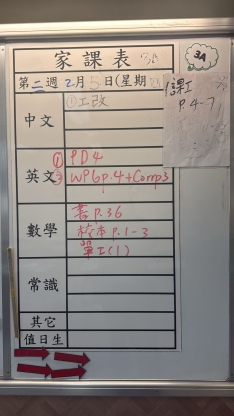 家課表
3A
第二週 2月5日(星期四)
3A
中文
①工改
課工
P.4-7
英文
① PD4
② WPGp.4+Comp3
數學
書P.36
校本P.1-3
單工(1)
常識
其它
值日生